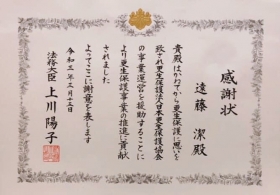 感謝状
遠藤 潔 殿
貴殿はかねてから更生保護に思いを
致され更生保護法人日本更生保護協会
の事業運営を援助することに
より更生保護事業の推進に貢献
されました
よってここに謝意を表します
令和三年三月十三日
法務大臣 上川陽子